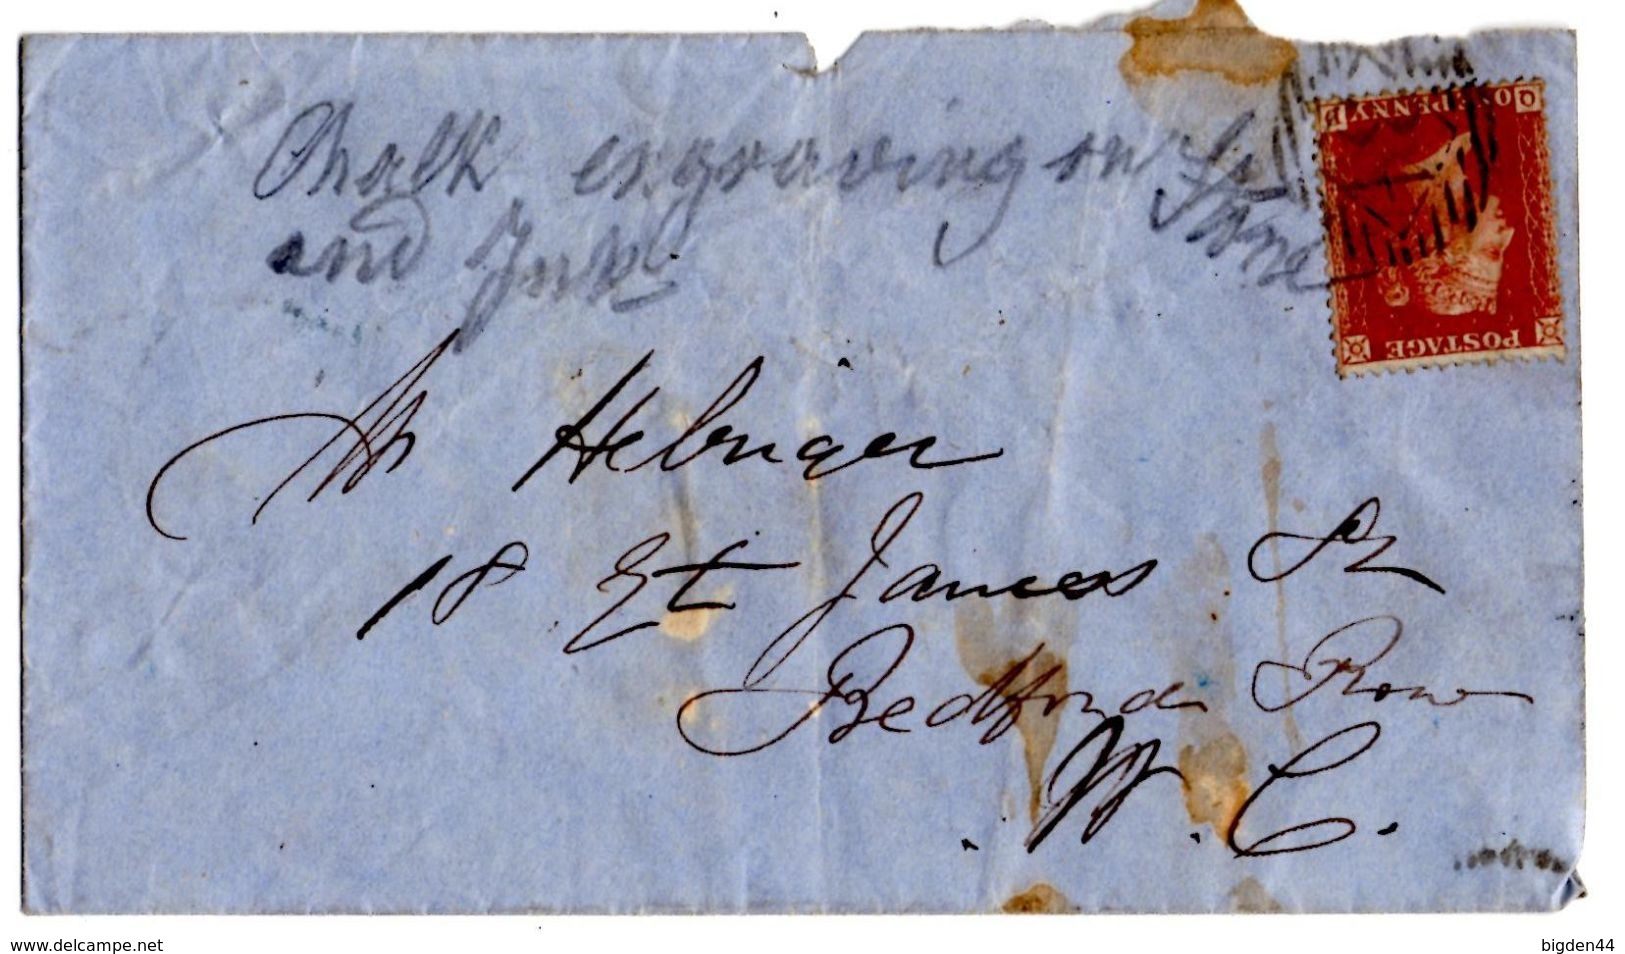 Chalk engraving on Stone
and Ink
Mr Hebuger
18 St James St
Bedford Row
W.C.
ONE PENNY
POSTAGE
www.delcampe.net
bigden44